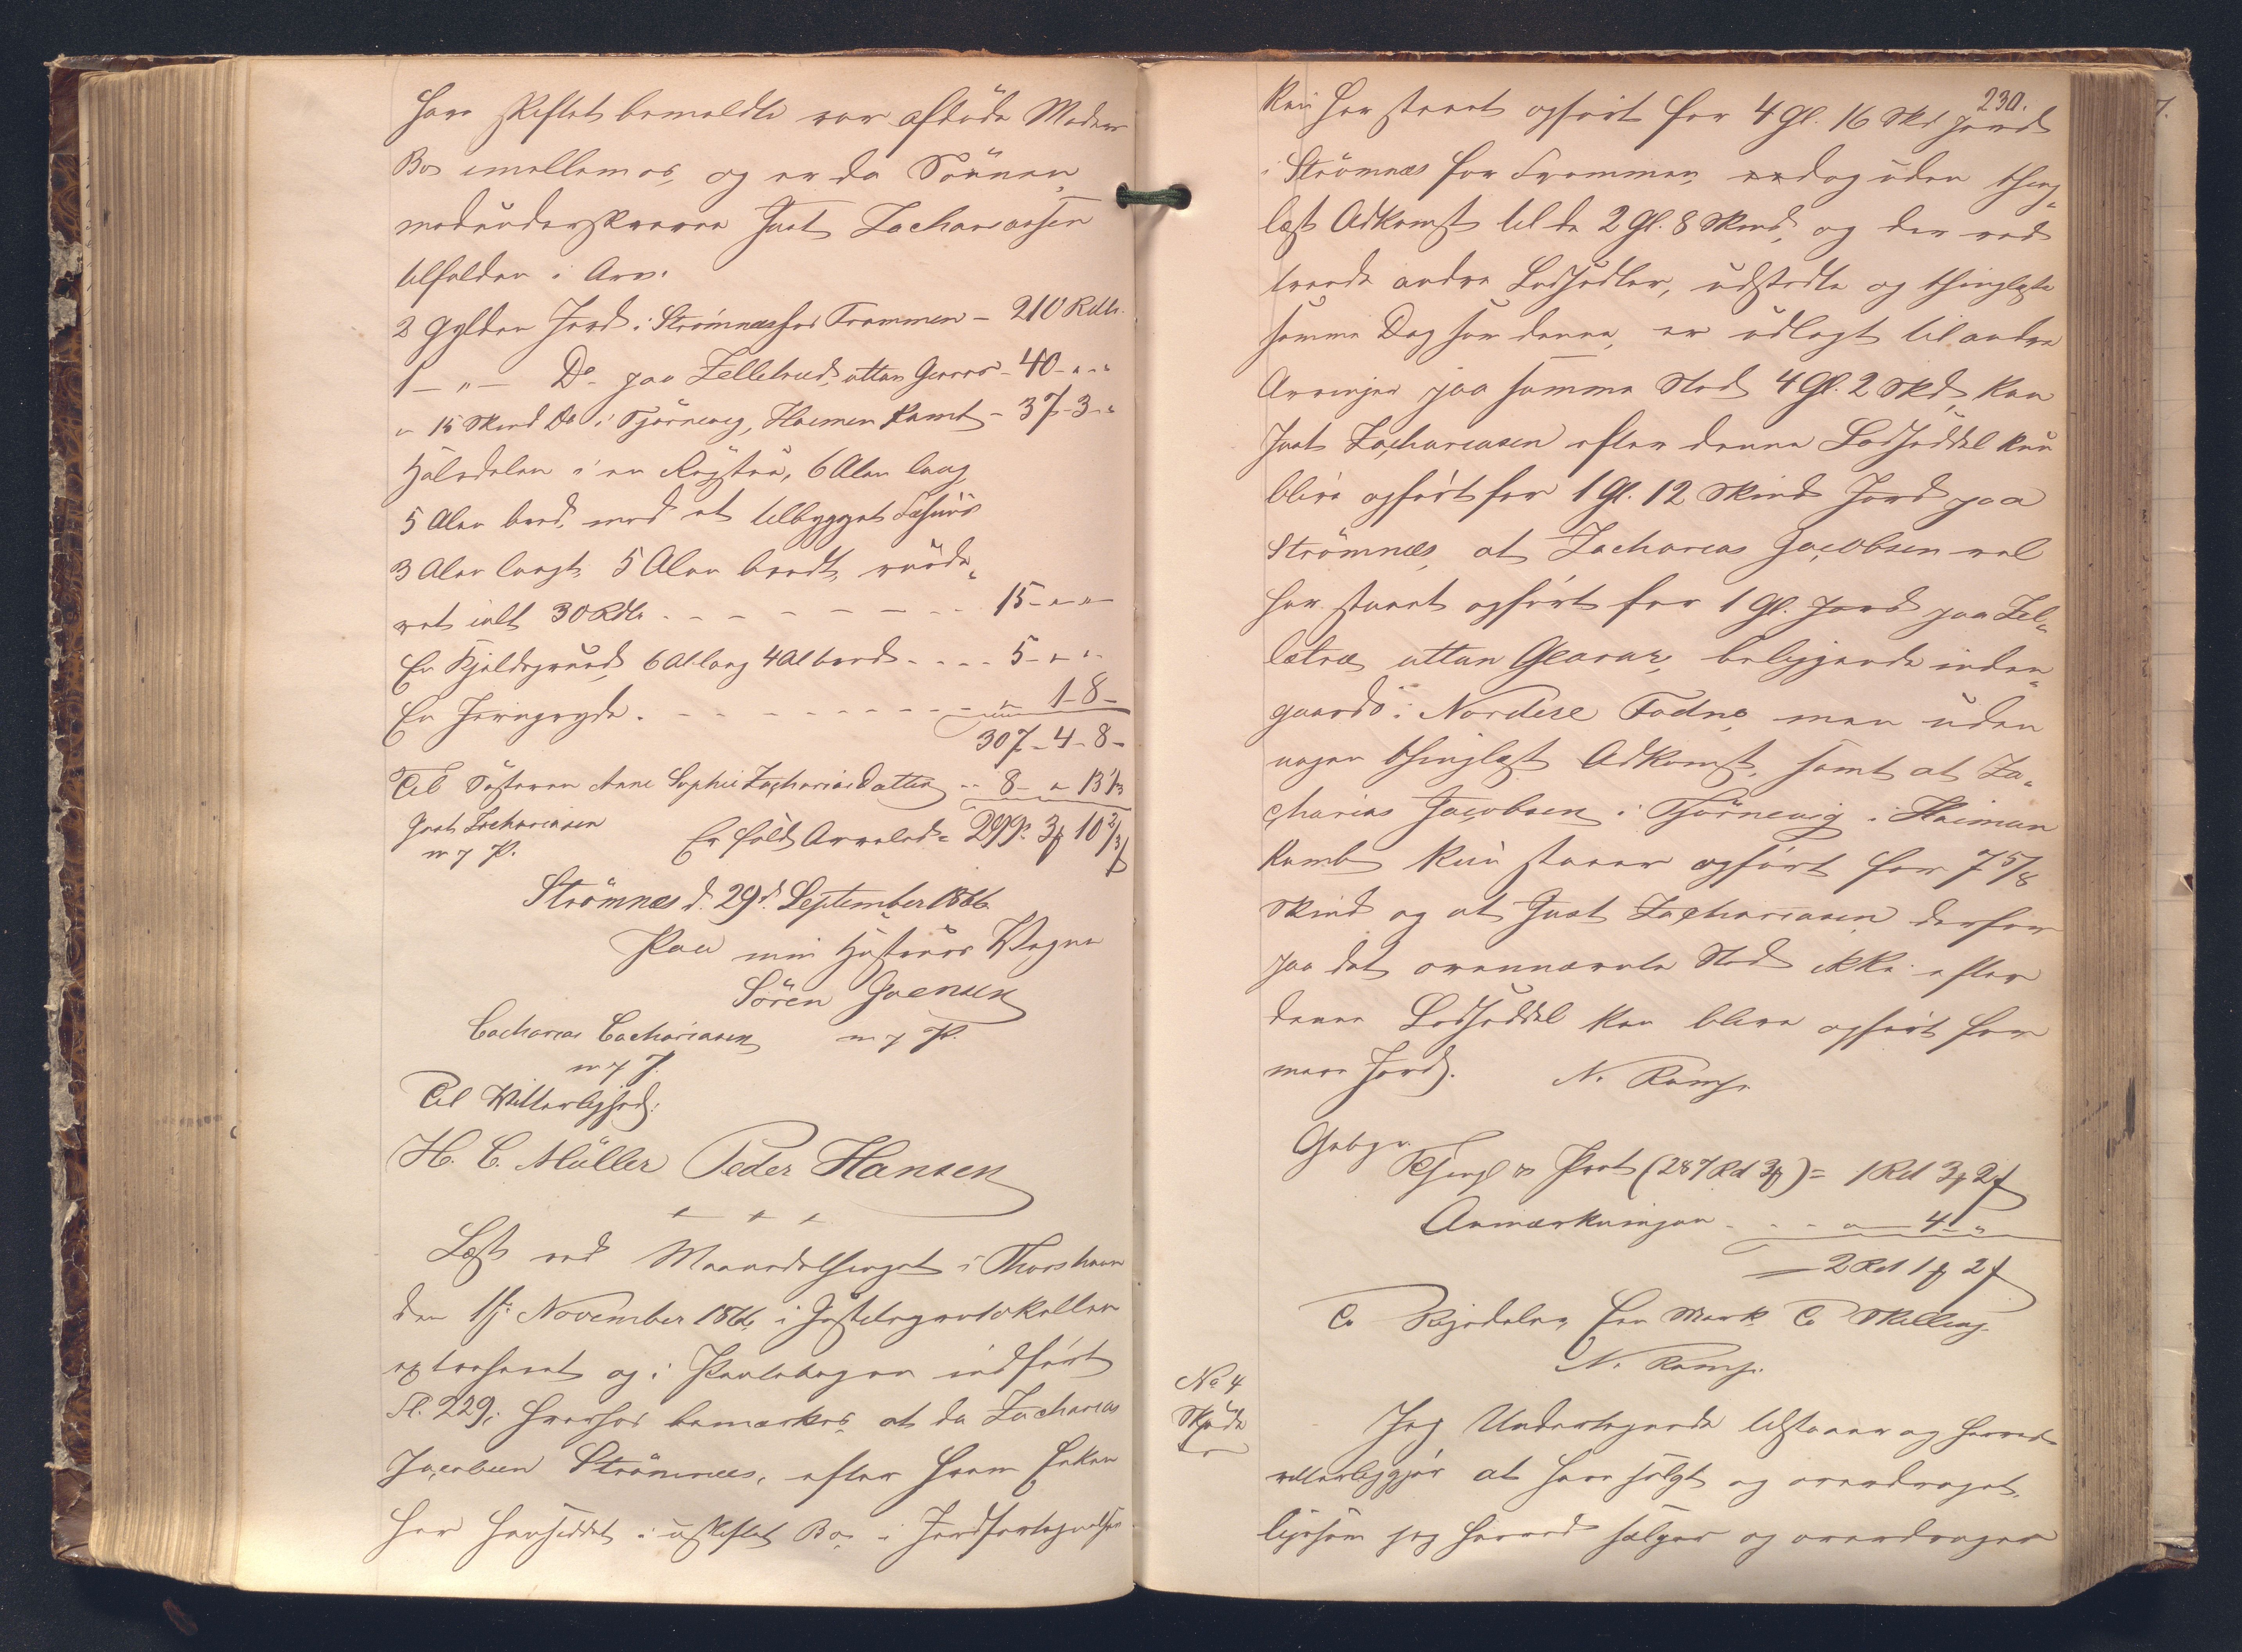 have skiftet bemeldte vor afdøde Moders
Bo imellem os, og er da Sønnen,
medunderskrevne Just Zachariassen
tilfalden i Arv:
2 Gylden Jord i Strömnæs for Frammen – 210 Rdlr.
1 – " – Do – paa Zelletræd, uttan Gearar – 40 – " – "
" 15 Skind Do i Tjörnevig, Heimen Kamb – 37 – 3 – "
Halvdelen i en Røgstue, 6 Alen lang
5 Alen bred, med et tilbygget Fæhuus
3 Alen langt, 5 Alen bredt, vurde„
ret ialt 30 Rdlr – – – – – – 15 – " – "
En Kjeldegrund, 6 Al. lang 4 Al bred – – – – 5 – " – "
En Jerngryde. – – – – – – – – " 1 – 8 –
307 – 4 – 8 –
Til Søsteren Anne Sophie Zachariasdatter – – 8 – " 13 1/3
Just Zachariasen
m. f. P.
Er fuld Arvelod = 299 3 ꝧ 10 2/3 ſ
Strömnæs d. 29d. September 1866.
Paa min Hustrues Vegne
Sören Joensen
Zacharias Zachariasen m. f. P.
m. f. P.
Til Vitterlighed:
H. C. Müller Peder Hansen
+ + +
Læst ved Maanedsthinget i Thorshavn
den 1ste November 1866, i Justitsprotokollen
extraheret og i Pantebogen indført
Fl. 229; hvorhos bemærkes, at da Zacharias
Jacobsen Strömnæs, efter hvem Enken
har hensiddet i uskiftet Bo, i Jordfortegnelsen
230.
kun har staaet opført for 4 Gl. 16 Skd Jord
i Strömnæs for Frammen, dog uden thing„
læst Adkomst til de 2 Gl. 8 Skind, og der ved
tvende andre Lodsedler, udstedte og thinglæste
samme Dag som denne, er udlagt til andre
Arvinger paa samme Sted 4 Gl. 2 Skd, kan
Just Zachariasen efter denne Lodseddel kun
blive opført for 1 Gl. 12 Skind Jord paa
Strömnæs, at Zacharias Jacobsen vel
har staaet opført for 1 Gl. Jord paa Zel„
letræ uttan Gearar, beliggende inden„
gaards i Nordere Fodne, men uden
nogen thinglæst Adkomst, samt at Za„
charias Jacobsen i Tjörnevig i Heiman
Kamb kun staaer opført for 7 5/8
Skind og at Just Zachariasen derfor
paa det ovennævnte Sted ikke efter
denne Lodseddel kan blive opført for
mere Jord.
N. Kamp.
Gebyr
Thingl & Prot (287 Rd 3 ꝧ) = 1 Rd 3 ꝧ 2 ſ
Anmærkningen – – – " – 4 – "
= 2 Rd 1 ꝧ 2 ſ
To Rigsdaler, Een Mark To Skilling.
N. Kamp.
No 4
Skjøde
Jeg Undertegnede tilstaaer og herved
vitterliggjør at have solgt og overdraget,
ligesom jeg herved sælger og overdrager